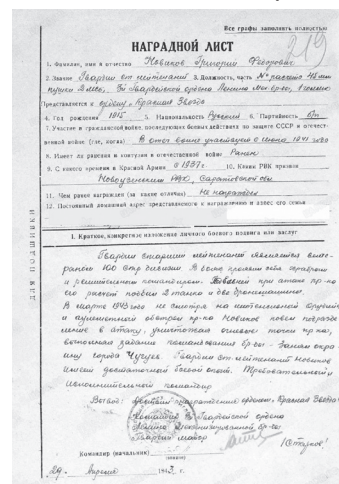 Все графы заполнять полностью
219
НАГРАДНОЙ ЛИСТ
1. Фамилия, имя и отчество Новиков Григорий Федорович
2. Звание Гвардии ст. лейтенант 3. Должность, часть расчета 45 мм
пушки 2 мсб, Гвардейской ордена Ленина
Представляется к ордену „Красная Звезда
4. Год рождения 1915 5. Национальность Русский 6. Партийность б/п
7. Участие в гражданской войне, последующих боевых действиях по защите СССР и отечест-
венной войне (где, когда) В отеч. войне участвует с июня 1941 года
8. Имеет ли ранения и контузии в отечественной войне Ранен
9. С какого времени в Красной Армии с 1937 г. 10. Каким РВК призван
Новоузенским РВК, Саратовской обл.
11. Чем ранее награжден (за какие отличия) Не награжден
12. Постоянный домашний адрес представляемого к награждению и адрес его семьи
ДЛЯ ПОДШИВКИ
I. Краткое, конкретное изложение личного боевого подвига или заслуг
Гвардии старший лейтенант является вете-
раном 100 стр. дивизии. В боях проявил себя храбрым
и решительным командиром. при атаке пр-ка
его расчет подбил 2 танка и две бронемашины.
В марте 1943 года не смотря на интенсивный орудийный
и минометный обстрел пр-ка Новиков повел подразде
ление в атаку, уничтожая огневые точки пр-ка,
выполняя задание командования бр-ды - занял окра
ину города Чугуев. Гвардии ст. лейтенант Новиков
имеет достаточный боевой опыт. Требовательный и
исполнительный командир.
Вывод: Достоин награждения орденом „Красная Звезда"
Командир Гвардейской ордена
Ленина механизированной бр-ды
Гвардии майор
Командир (начальник)
Апреля 1943 г.